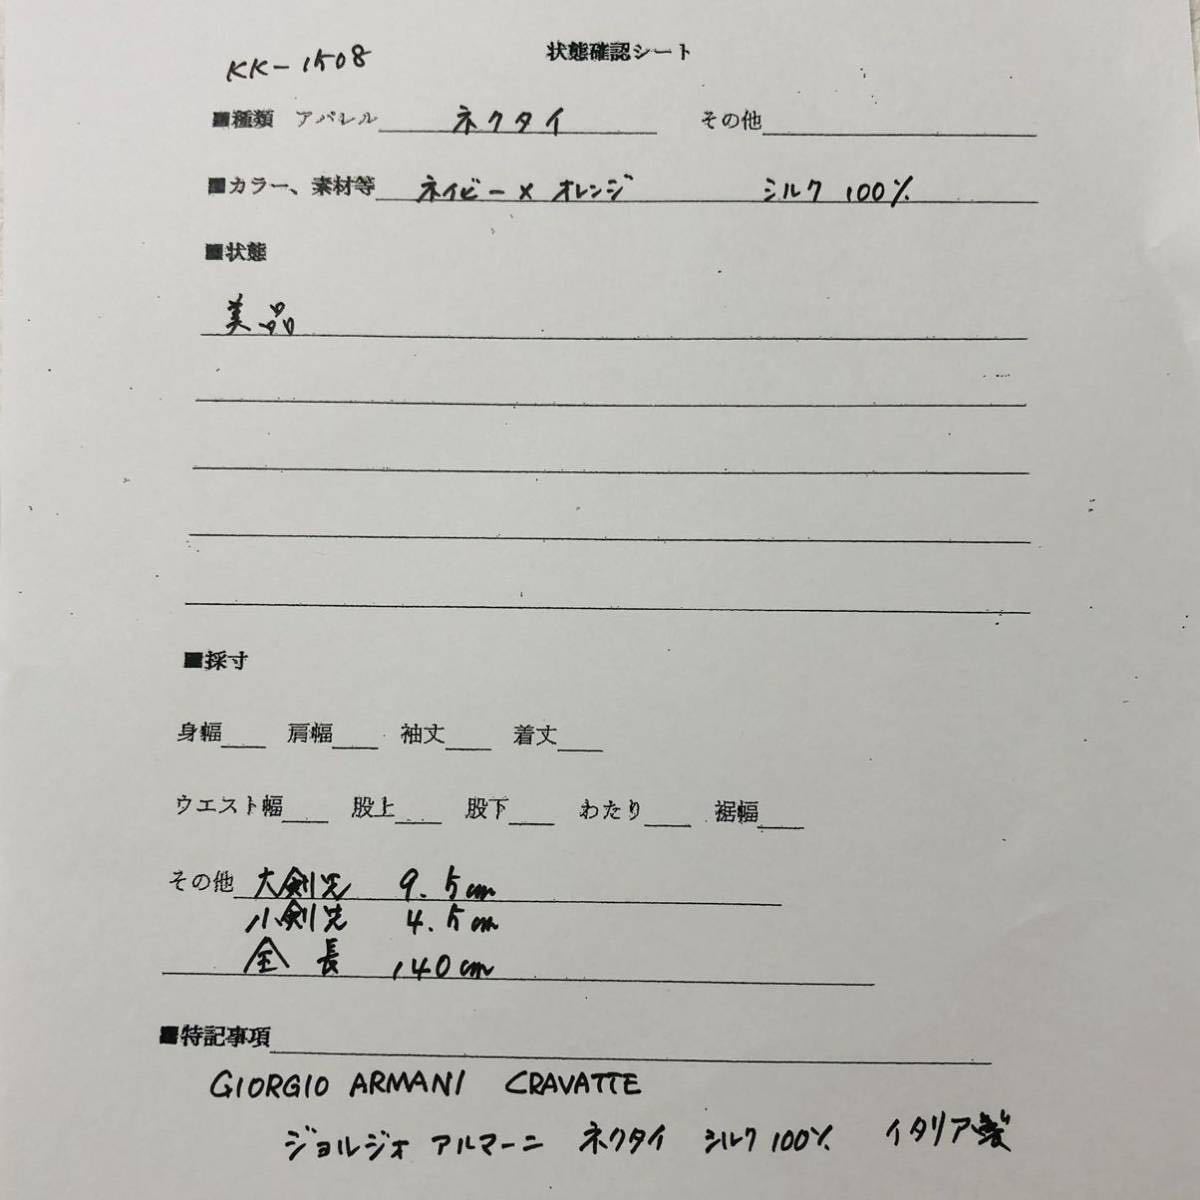 状態確認シート
KK-1508
■種類 アパレル ネクタイ その他
■カラー、素材等 ネイビー×オレンジ シルク 100%
■状態
美品
■採寸
身幅 肩幅 袖丈 着丈
ウエスト幅 股上 股下 わたり 裾幅
その他 大剣先 9.5cm
小剣先 4.5cm
全長 140cm
■特記事項
GIORGIO ARMANI CRAVATTE
ジョルジオ アルマーニ ネクタイ シルク 100% イタリア製